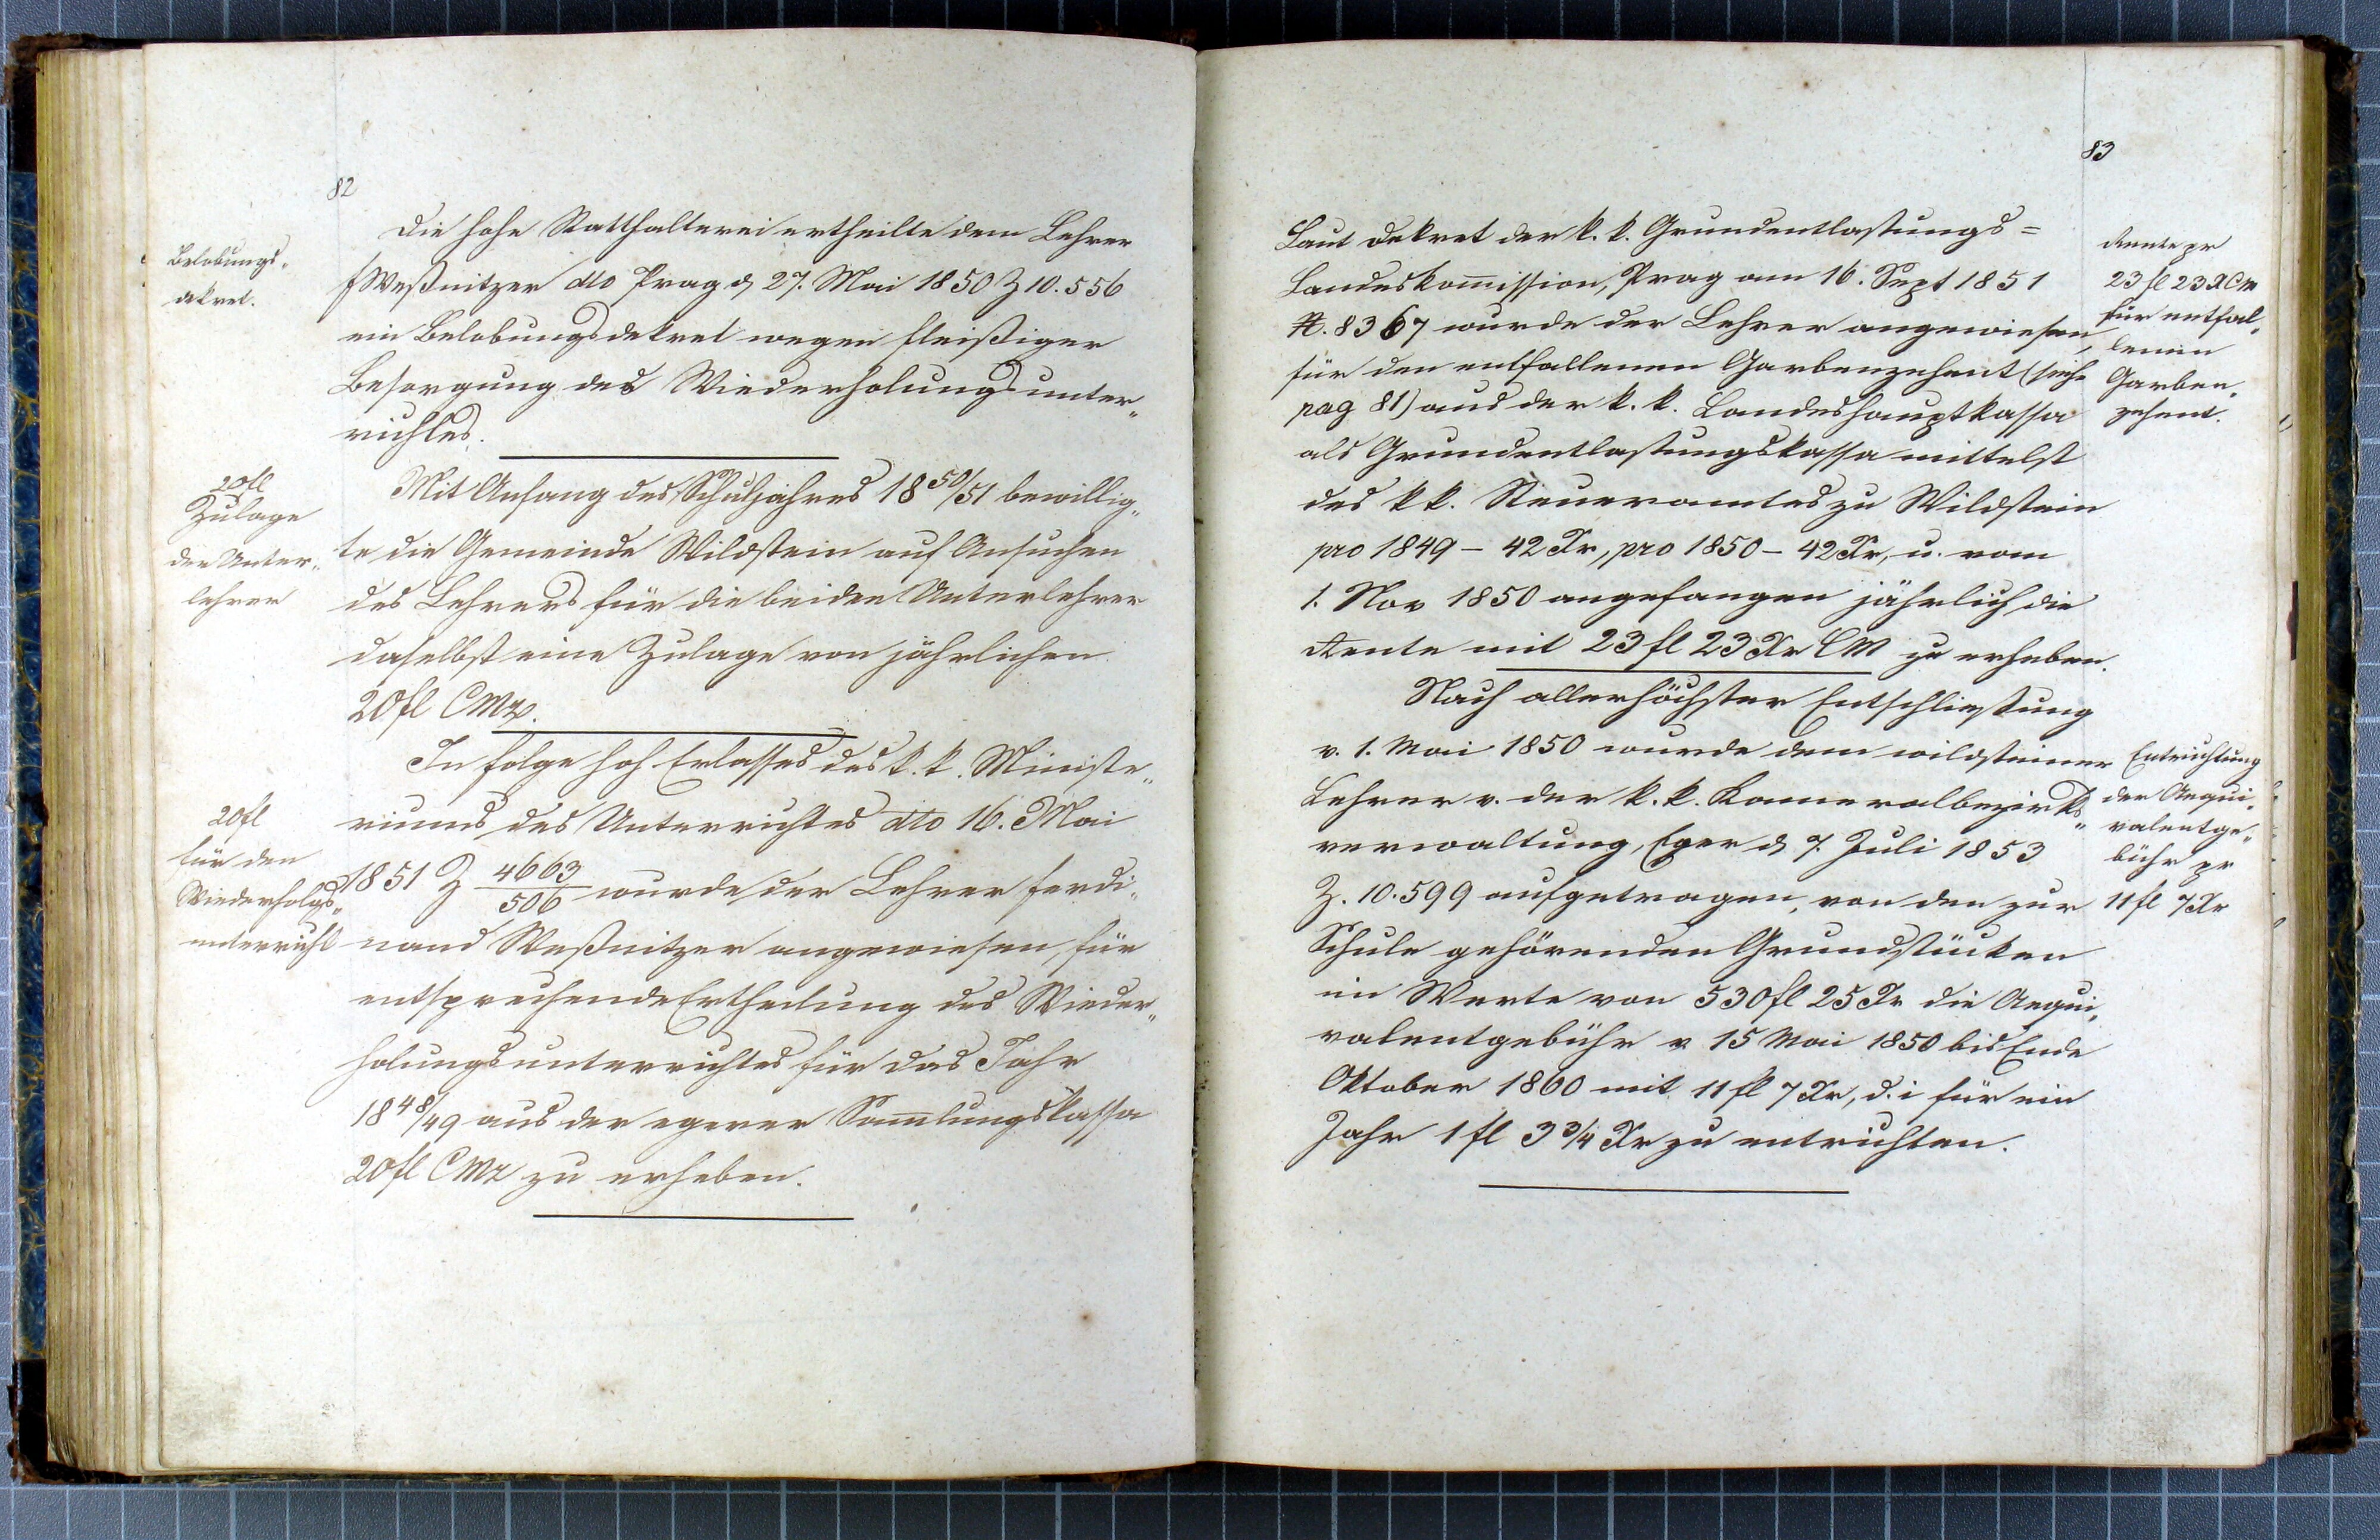 82
Belobungs„
dekret.
Die hohe Statthalterei ertheilte dem Lehrer
f Weßnitzer dto Prag d 27. Mai 1850 Z 10.556
ein Belobungsdekret wegen fleißiger
Besorgung des Wiederholungsunter„
richtes.
20fl
Zulage
der Unter„
lehrer
Mit Anfang des Schuljahres 18 50/51 bewillig„
te die Gemeinde Wildstein auf Ansuchen
des Lehrers für die beiden Unterlehrer
daselbst eine Zulage von jährlichen
20fl CMz.
20fl
für den
Wiederholgs„
unterricht
In folge hoh Erlasses des k. k. Ministe„
riums des Unterrichtes dto 16. Mai
1851 Z 4663/506 wurde der Lehrer ferdi„
nand Weßnitzer angewiesen, für
entsprechende Ertheilung des Wieder„
holungsunterrichtes für das Jahr
18 48/49 aus der egerer Sam̅lungskassa
20fl CMz zu erheben.
83
Laut Dekret der k. k. Grundentlastungs=
Landeskom̅ission, Prag am 16. Sept 1851
N. 8367 wurde der Lehrer angewiesen,
für den entfallenen Garbenzehent (siehe
pag 81) aus der k. k. Landeshauptkassa
als Grundentlastungskassa mittelst
des kk. Steueramtes zu Wildstein
pro 1849 – 42 Xr, pro 1850 – 42 Xr, u. vom
1. Nov 1850 angefangen jährlich die
Rente mit 23 fl 23 Xr CM zu erheben.
Rente pr
23 fl 23 X CM
für entfal„
lenen
Garben„
zehent.
Nach allerhöchster Entschließung
v. 1. Mai 1850 wurde dem wildsteiner
Lehrer v. der k. k. Kameralbezirks„
verwaltung, Eger d 7. Juli 1853
Z. 10.599 aufgetragen, von den zur
Schule gehörenden Grundstücken
im Werte von 530 fl 25 Xr die Aequi„
valentgebühr v. 15 Mai 1850 bis Ende
Oktober 1860 mit 11 fl 7 Xr, d. i für ein
Jahr 1 fl 3 3/4 Xr zu entrichten.
Entrichtung
der Aequi„
valentge„
bühr pr
11 fl 7 Xr